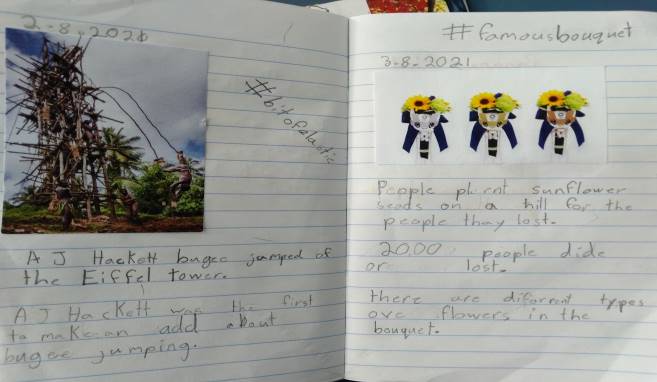 2-8-2021
#bitofelastic
A J Hackett bugee jumped of
the Eiffel tower.
A J Hackett was the first
to make an add about
bugee jumping.
#famousbouquet
3-8-2021
People plent sunflower
seads on a hill for the
people thay lost.
20,00 people dide
or lost.
there are diforrent types
ove flowers in the
bouquet.